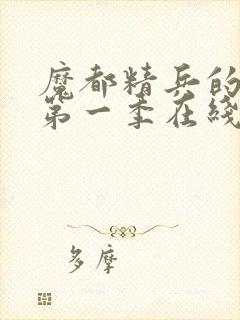 魔都精兵的
第一季在线
多摩